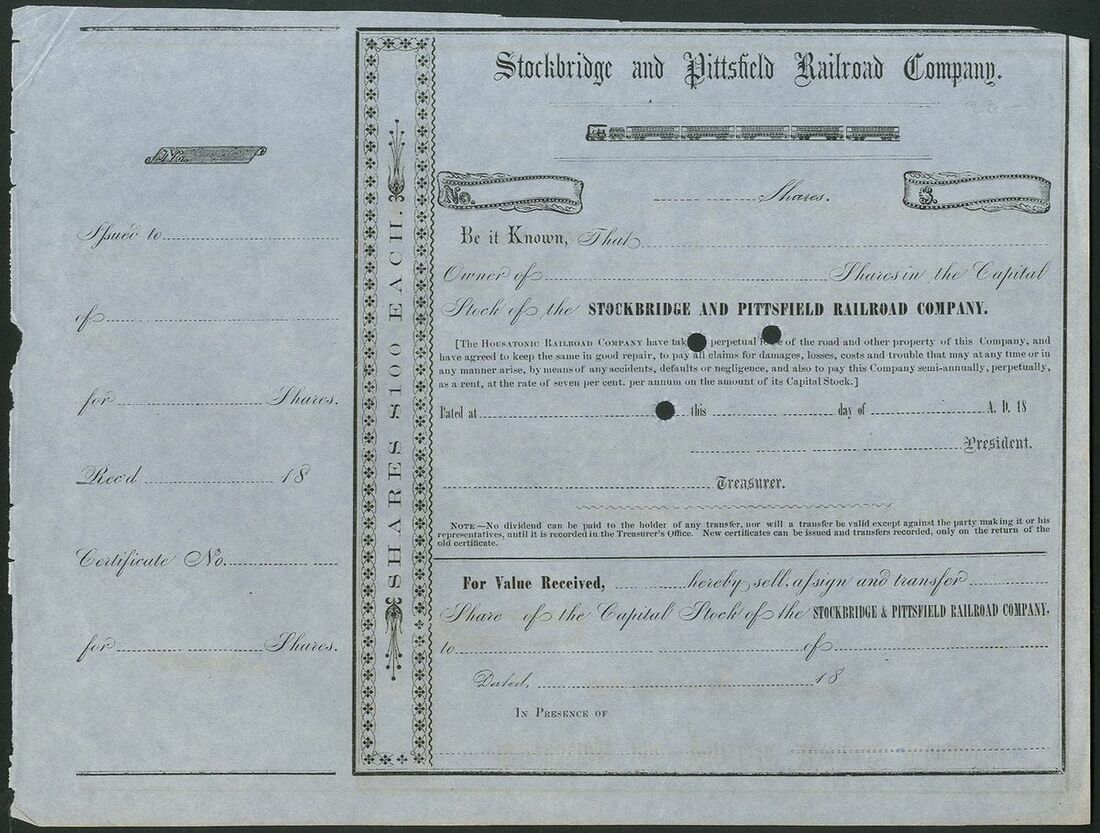 No.
Issued to
of
for Shares.
Rec'd 18
Certificate No.
for Shares.
SHARES $100 EACH.
Stockbridge and Pittsfield Railroad Company.
No. Shares. $.
Be it Known, That
Owner of Shares in the Capital
Stock of the STOCKBRIDGE AND PITTSFIELD RAILROAD COMPANY.
[The Housatonic Railroad Company have perpetual of the road and other property of this Company, and
have agreed to keep the same in good repair, to pay all claims for damages, losses, costs and trouble that may at any time or in
any manner arise, by means of any accidents, defaults or negligence, and also to pay this Company semi-annually, perpetually,
as a rent, at the rate of seven per cent. per annum on the amount of its Capital Stock.]
Dated at this day of A. D. 18
President.
Treasurer.
Note.—No dividend can be paid to the holder of any transfer, nor will a transfer be valid except against the party making it or his
representatives, until it is recorded in the Treasurer's Office. New certificates can be issued and transfers recorded, only on the return of the
old certificate.
For Value Received, hereby sell, assign and transfer
Share of the Capital Stock of the STOCKBRIDGE & PITTSFIELD RAILROAD COMPANY.
to of
Dated, 18
In Presence of